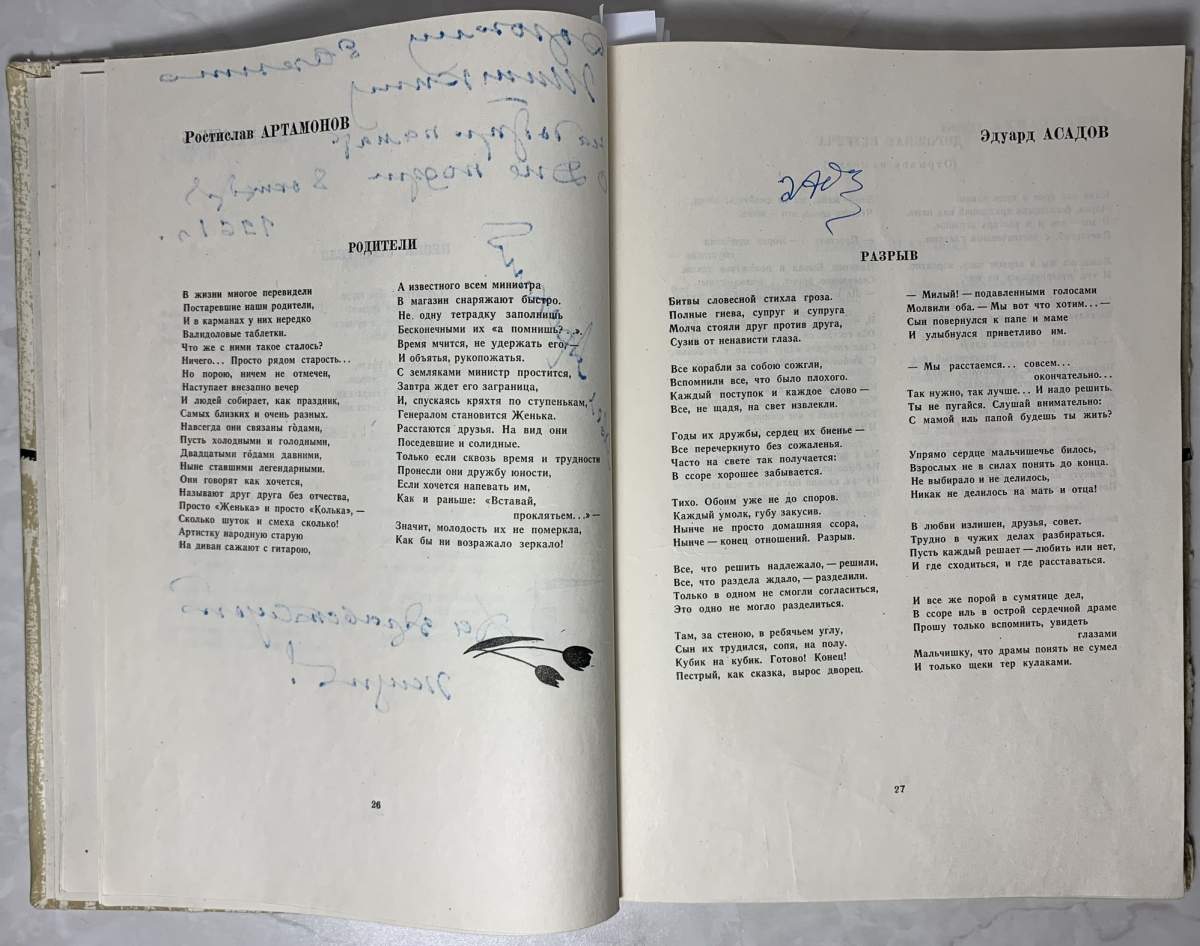 Дорогому
Ростислав АРТАМОНОВ
на добрую память
о Дне поэзии 8 октября
1961 г.
РОДИТЕЛИ
В жизни многое перевидели
Постаревшие наши родители,
И в карманах у них нередко
Валидоловые таблетки.
Что же с ними такое сталось?
Ничего... Просто рядом старость...
Но порою, ничем не отмечен,
Наступает внезапно вечер
И людей собирает, как праздник,
Самых близких и очень разных.
Навсегда они связаны го́дами,
Пусть холодными и голодными,
Двадцатыми го́дами давними,
Ныне ставшими легендарными.
Они говорят как хочется,
Называют друг друга без отчества,
Просто «Женька» и просто «Колька», —
Сколько шуток и смеха сколько!
Артистку народную старую
На диван сажают с гитарою,
А известного всем министра
В магазин снаряжают быстро.
Не одну тетрадку заполнишь
Бесконечными их «а помнишь?..».
Время мчится, не удержать его, —
И объятья, рукопожатья.
С земляками министр простится,
Завтра ждет его заграница,
И, спускаясь кряхтя по ступенькам,
Генералом становится Женька.
Расстаются друзья. На вид они
Поседевшие и солидные.
Только если сквозь время и трудности
Пронесли они дружбу юности,
Если хочется напевать им,
Как и раньше: «Вставай,
проклятьем...»—
Значит, молодость их не померкла,
Как бы ни возражало зеркало!
Да здравствует
жизнь!
26
Эдуард АСАДОВ
РАЗРЫВ
Битвы словесной стихла гроза.
Полные гнева, супруг и супруга
Молча стояли друг против друга,
Сузив от ненависти глаза.
Все корабли за собою сожгли,
Вспомнили все, что было плохого.
Каждый поступок и каждое слово —
Все, не щадя, на свет извлекли.
Годы их дружбы, сердец их биенье —
Все перечеркнуто без сожаленья.
Часто на свете так получается:
В ссоре хорошее забывается.
Тихо. Обоим уже не до споров.
Каждый умолк, губу закусив.
Нынче не просто домашняя ссора,
Нынче — конец отношений. Разрыв.
Все, что решить надлежало, — решили,
Все, что раздела ждало, — разделили.
Только в одном не смогли согласиться,
Это одно не могло разделиться.
Там, за стеною, в ребячьем углу,
Сын их трудился, сопя, на полу.
Кубик на кубик. Готово! Конец!
Пестрый, как сказка, вырос дворец.
— Милый! — подавленными голосами
Молвили оба. — Мы вот что хотим... —
Сын повернулся к папе и маме
И улыбнулся приветливо им.
— Мы расстаемся... совсем...
окончательно...
Так нужно, так лучше... И надо решить.
Ты не пугайся. Слушай внимательно:
С мамой иль папой будешь ты жить?
Упрямо сердце мальчишечье билось,
Взрослых не в силах понять до конца.
Не выбирало и не делилось,
Никак не делилось на мать и отца!
В любви излишен, друзья, совет.
Трудно в чужих делах разбираться.
Пусть каждый решает — любить или нет,
И где сходиться, и где расставаться.
И все же порой в сумятице дел,
В ссоре иль в острой сердечной драме
Прошу только вспомнить, увидеть
глазами
Мальчишку, что драмы понять не сумел
И только щеки тер кулаками.
27